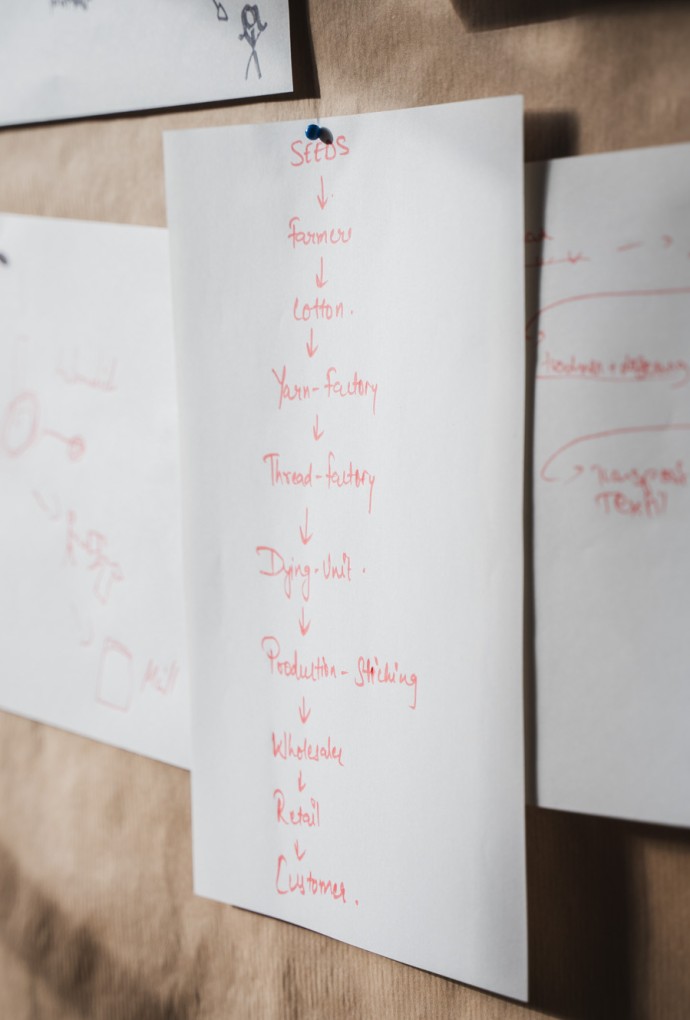 SEEDS
↓
Farmers
↓
Cotton.
↓
Yarn-factory
↓
Thread-factory
↓
Dying-Unit.
↓
Production-Stiching
↓
Wholesaler
↓
Retail
↓
Customer.
Mill